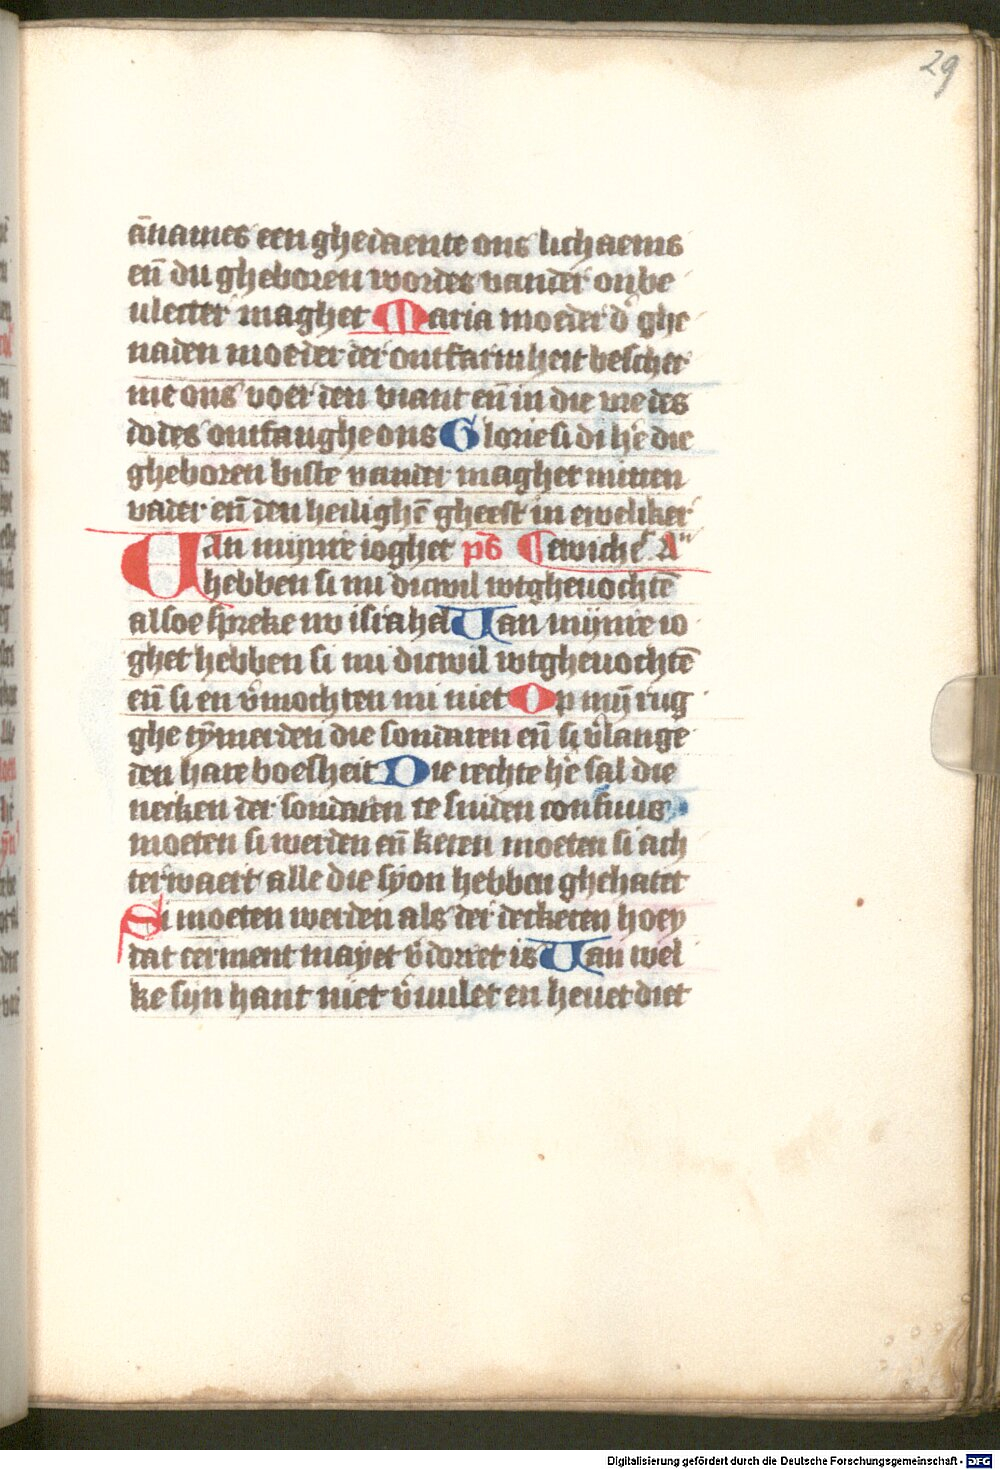 29
ānames een ghedaente ons lichaems
eñ du gheboren wordes vander onbe
ulecter maghet Maria moeder d' ghe
naden moeder der ontfarmheit bescher
me ons voer den viant eñ in die vre des
dodes ontfanghe ons Glorie si di h'e die
gheboren biste vander maghet mitten
vader eñ den heilighē gheest in eweliker
Van mijnre ioghet ps Ewich' A'
hebben si mi dicwil wtgheuochtē
alsoe spreke nv israhel Van mijnre io
ghet hebben si mi dicwil wtgheuochtē
eñ si en v'mochten mi niet Op mȳ rug
ghe tȳmerden die sondaren eñ si v'lange
den hare boesheit Die rechte h'e sal die
necken der sondaren te sniden confuus
moeten si werden eñ keren moeten si ach
terwaert alle die syon hebben ghehatet
Si moeten werden als der decketen hoey
dat eerment mayet v'dorret is Van wel
ke sijn hant niet v'vulet en heuet diet
Digitalisierung gefördert durch die Deutsche Forschungsgemeinschaft - DFG